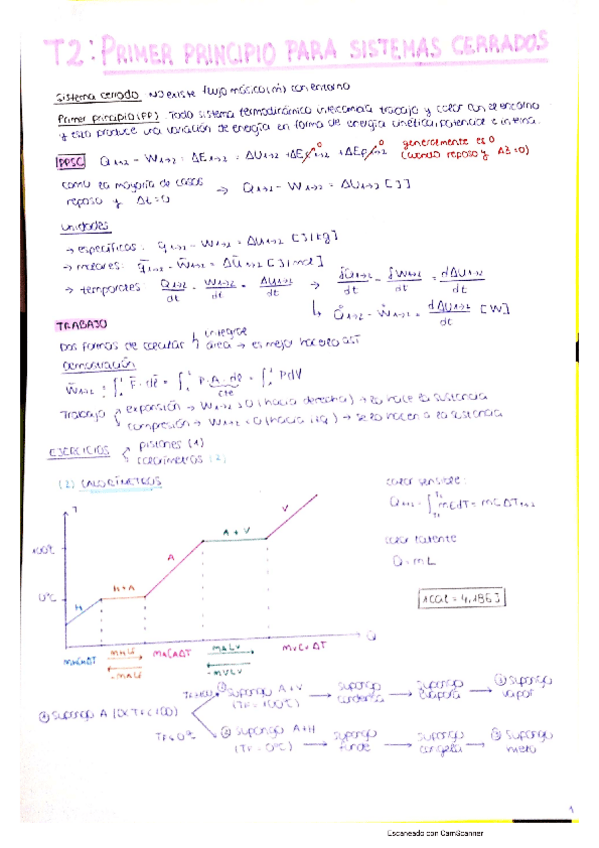 T2: PRIMER PRINCIPIO PARA SISTEMAS CERRADOS
Sistema cerrado NO existe flujo másico (ṁ) con entorno
Primer principio (PP). Todo sistema termodinámico intercambia trabajo y calor con el entorno
y esto produce una variación de energía en forma de energía cinética, potencial e interna.
PPSC Q1→2 - W1→2 = ΔE1→2 = ΔU1→2 + ΔEc1→2 + ΔEp1→2
0
0
generalmente es 0
(cuando reposo y Δz=0)
como la mayoría de casos
reposo y Δz=0
→ Q1→2 - W1→2 = ΔU1→2 [J]
unidades
→ específicas: q1→2 - w1→2 = Δu1→2 [J/kg]
→ molares: q̄1→2 - w̄1→2 = Δū1→2 [J/mol]
→ temporales: Q1→2/dt - W1→2/dt = ΔU1→2/dt → δQ1→2/dt - δW1→2/dt = dU1→2/dt
↳ Q̇1→2 - Ẇ1→2 = dU1→2/dt [W]
TRABAJO
Dos formas de calcular integral
área → es mejor hacerlo así
Demostración
P·A·dl
cte
PdV
Trabajo expansión → W1→2 > 0 (hacia derecha) → lo hace la sustancia
compresión → W1→2 < 0 (hacia izq.) → se lo hacen a la sustancia
EJERCICIOS pistones (1)
calorímetros (2)
(2) CALORÍMETROS
calor sensible:
mcdT = mcΔT1→2
calor latente
Q = mL
1cal = 4,186J
T
100ºC
0ºC
H
H+A
A
A+V
V
Q
mHcHΔT
mHLf
-mALf
mAcAΔT
mALv
-mVLv
mVcVΔT
① Supongo A (0<TF<100)
TF>100
② Supongo A+V
(TF=100ºC)
→ supongo
condensa
→ supongo
evapora
→ ③ Supongo
vapor
TF<0ºC
② Supongo A+H
(TF=0ºC)
→ supongo
funde
→ supongo
congela
→ ③ Supongo
hielo
1
Escaneado con CamScanner